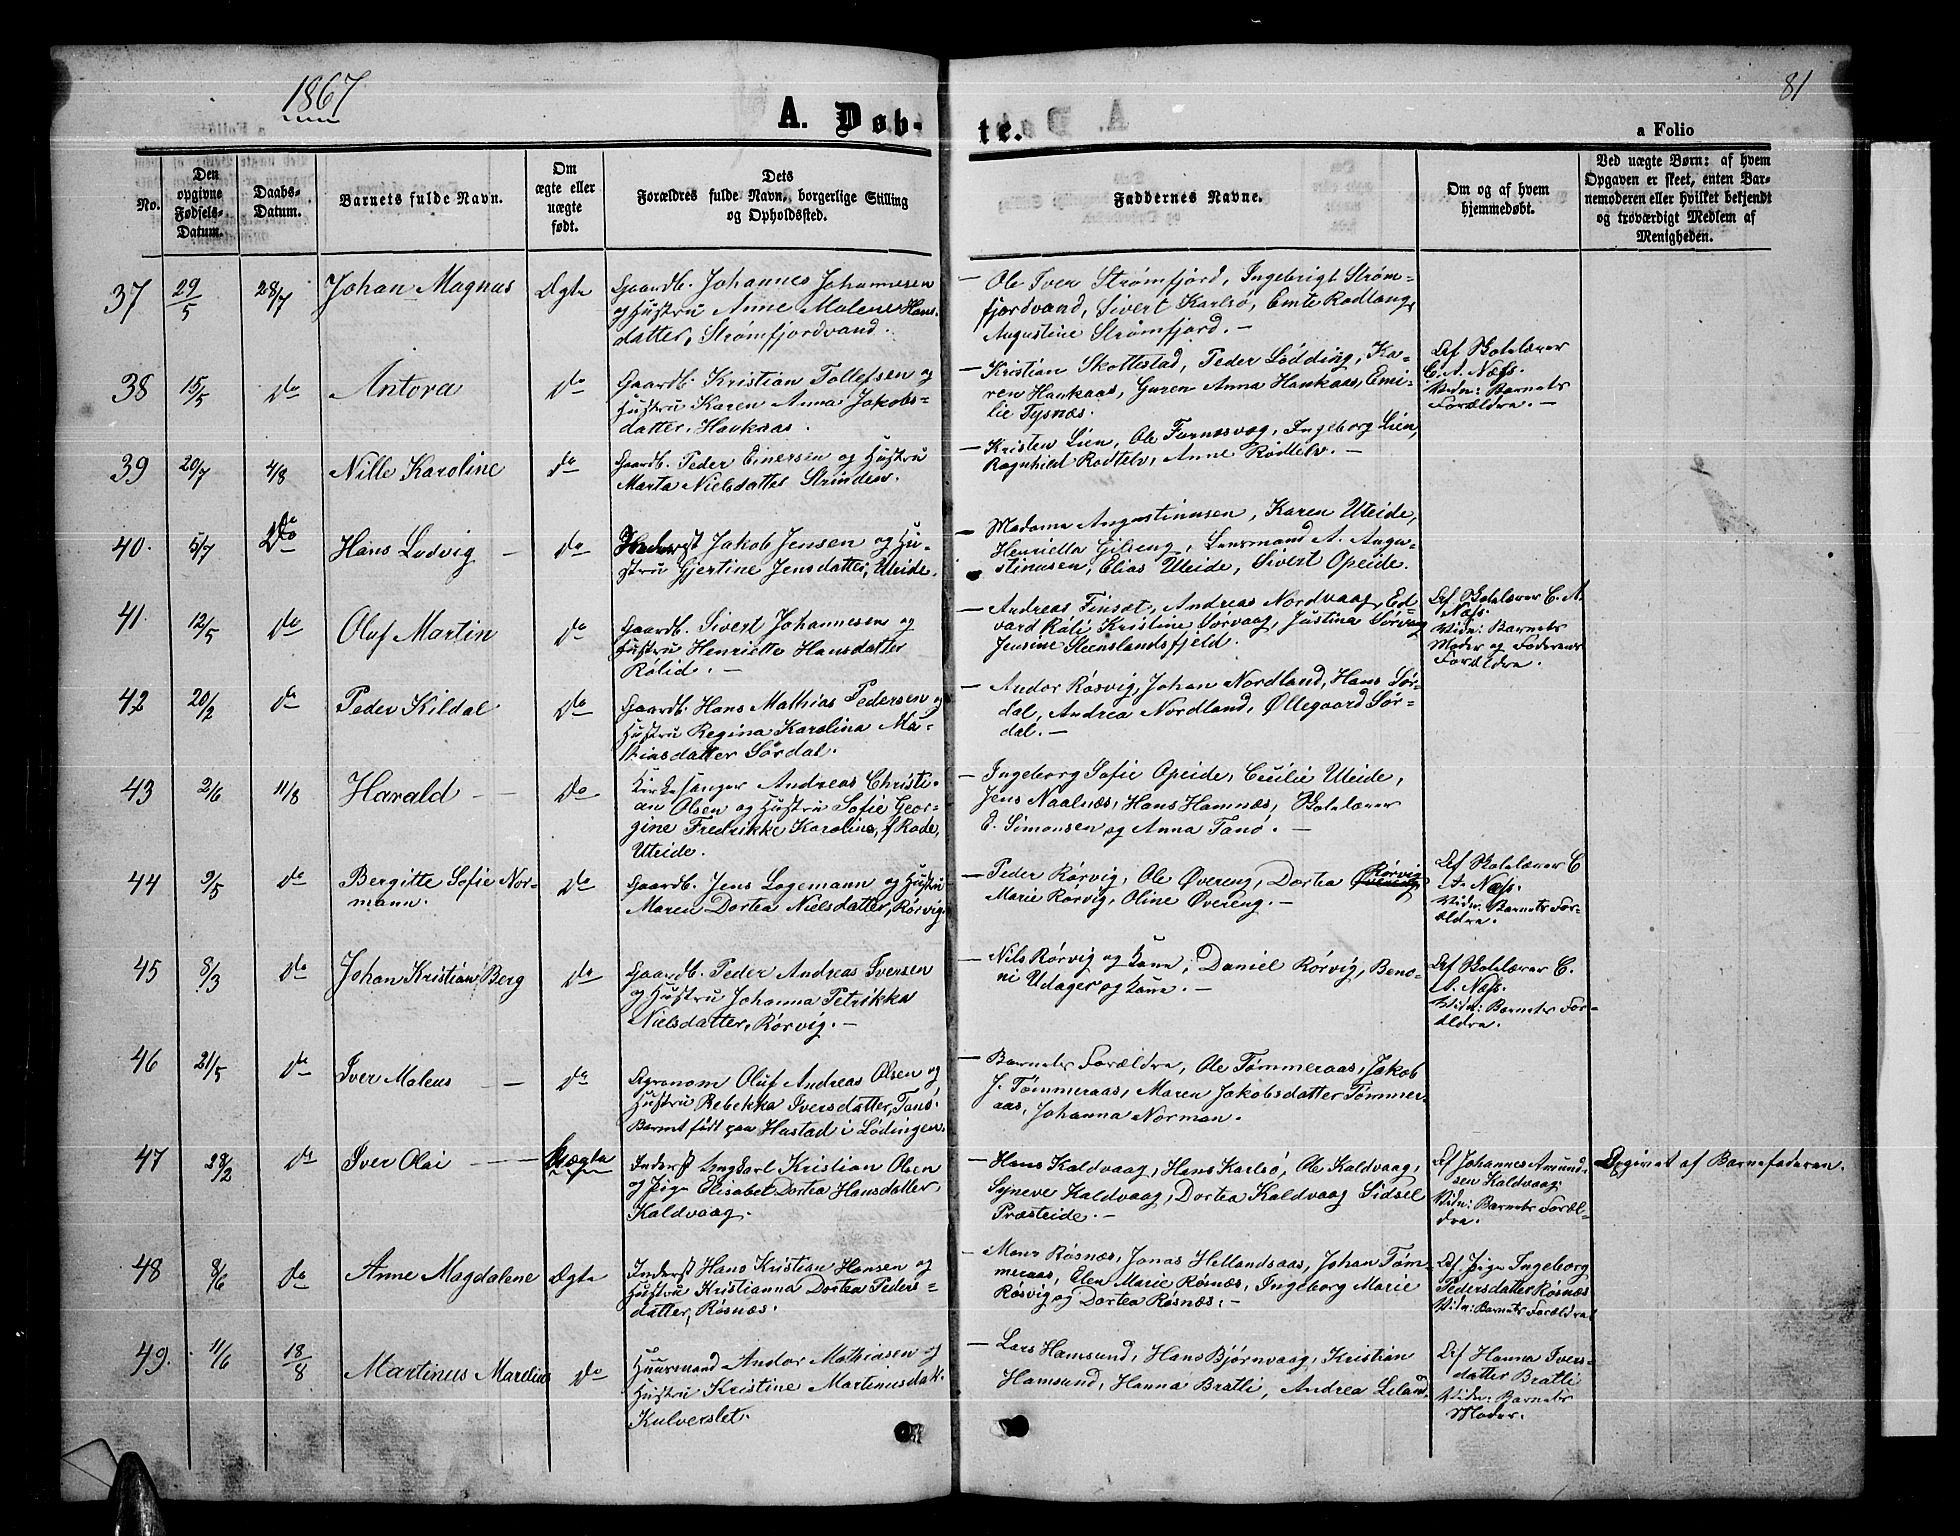 1867
81
A. Døb-
te.
a Folio
No.
Den
opgivne
Fødsels-
Datum.
Daabs-
Datum.
Barnets fulde Navn.
Om
ægte eller
uægte
født.
Dets
Forældres fulde Navn, borgerlige Stilling
og Opholdssted.
Faddernes Navne.
Om og af hvem
hjemmedøbt.
Ved uægte Børn: af hvem
Opgaven er skeet, enten Bar-
nemoderen eller hvilket bekjendt
og troværdigt Medlem af
Menigheden.
37 29/5 28/7 Johan Magnus Ægte
Gaardb. Johannes Johannesen
og Hustru Anne Malene Hans-
datter, Strømfjordvand.
— Ole Iver Strømfjord, Ingebrigt Strøm-
fjordvand, Sivert Karlsø, Emte Rodtang,
Augustine Strømfjord. —
38 15/5 Do Antora Do
Gaardb. Kristian Tollefsen og
Hustru Karen Anna Jakobs-
datter, Haukaas.
— Kristian Skottestad, Peder Lødding, Ka-
ren Haukaas, Guren Anna Haukaas, Emi-
lie Tysnæs.
Af Skolelærer
C. A. Næss.
Vidn: Barnets
Forældre. —
39 20/7 4/8 Nille Karoline Do
Gaardb. Peder Einersen og Hustru
Marta Nielsdatter Strinden.
— Kristen Lien, Ole Furnesvaag, Ingeborg Lien,
Ragnhild Rodtelv, Anne Rodtelv. —
40. 5/7 Do Hans Ludvig — Do
Inderst Jakob Jensen og Hu-
stru Gjertine Jensdatter, Uteide.
— Madame Augustinusen, Karen Uteide,
Henriette Gilseng, Lensmand A. Augu-
stinusen, Elias Uteide, Sivert Opeide.
41. 12/5 Do Oluf Martin Do
Gaardb. Sivert Johannesen og
Hustru Henriette Hansdatter
Rølid. —
— Andreas Finsæt, Andreas Nordvaag, Ed-
vard Røli, Kristine Sørvaag, Justina Sørvaag
Jensine Steenslandsfjeld.
Af Skolelærer C. A.
Næss.
Vidn: Barnets
Moder og Foderens
Forældre.
42 20/2 Do Peder Kildal Do
Gaardb. Hans Mathias Pedersen og
Hustru Regina Karolina Ma-
thiasdatter Sørdal.
— Andor Røsvig, Johan Nordland, Hans Sør-
dal, Andrea Nordland, Øllegaard Sør-
dal. —
43 2/6 11/8 Harald — Do
Kirkesanger Andreas Christi-
an Olsen og Hustru Sofie Geor-
gine Fredrikke Karoline, f. Rode,
Uteide.
— Ingeborg Sofie Opeide, Cecilie Uteide,
Jens Naalnæs, Hans Hamnæs, Skolelærer
C. Simonsen og Anna Tanø. —
44 9/5 Do Bergitte Sofie Nor-
mann. Do
Gaardb. Jens Lagemann og Hustru
Maren Dortea Nielsdatter, Rørvig.
— Peder Rørvig, Ole Øvereng, Dortea Rørvig
Marie Rørvig, Oline Øvereng. —
Af Skolelærer C
A. Næss.
Vidn: Barnets For-
ældre.
45 8/3 Do Johan Kristian Berg Do
Gaardb. Peder Andreas Iversen
og Hustru Johanna Petrikka
Nielsdatter, Rørvig. —
— Nils Rørvig og Kone, Daniel Rørvig, Beno-
ni Udager og Kone. —
Af Skolelærer C.
A. Næss.
Vidn: Barnets For-
ældre.
46 21/5 Do Iver Maleus — Do
Agronom Oluf Andreas Olsen og
Hustru Rebekka Iversdatter, Tans.
Barnet født paa Hustad i Lødingen.
— Barnets Forældre, Ole Tømmeraas, Jakob
J. Tømmeraas, Maren Jakobsdatter Tømmer-
aas, Johanna Norman.
47 28/2 Do Iver Olai — Uægte
Inderst Ungkarl Kristian Olsen
og Pige Elisabet Dortea Hansdatter
Kaldvaag.
— Hans Kaldvaag, Hans Karlsø, Ole Kaldvaag,
Syneve Kaldvaag, Dortea Kaldvaag Sidsel
Præsteide. —
Af Johannes Amund-
sen Kaldvaag.
Vidn: Barnets Foræl-
dre.
Opgivet af Barnefaderen.
48 8/6 Do Anne Magdalene Ægte
Inderst Hans Kristian Hansen og
Hustru Kristianna Dortea Peders-
datter, Røsnæs.
— Mons Røsnæs, Jonas Hellandsaas, Johan Tøm-
meraas, Elen Marie Røsnæs, Ingeborg Marie
Røsvig og Dortea Røsnæs. —
Af Pige Ingeborg
Pedersdatter Røsnæs
Vidn: Barnets Forældre
49. 11/6 18/8 Martinus Marelius Do
Huusmand Andor Mathiasen og
Hustru Kristine Martinusdat.
Kulverslet.
— Lars Hamsund, Hans Bjørnvaag, Kristian
Hamsund, Hanna Bratli, Andrea Leland
Af Hanna Ivers-
datter Bratli
Vidn: Barnets
Moder.